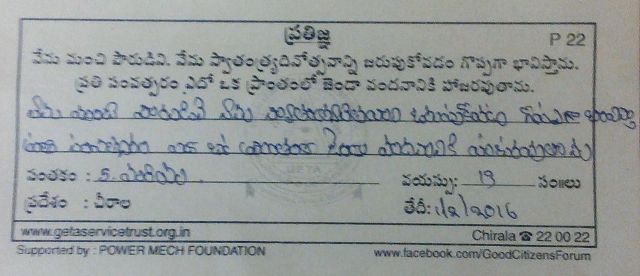 ప్రతిజ్ఞ
P 22
నేను మంచి పౌరుడిని. నేను స్వాతంత్ర్యదినోత్సవాన్ని జరుపుకోవడం గొప్పగా భావిస్తాను.
ప్రతి సంవత్సరం ఏదో ఒక ప్రాంతంలో జెండా వందనానికి హాజరవుతాను.
నేను మంచి పౌరుడిని నేను జరుపుకోవడం గొప్పగా
ప్రతి సంవత్సరం ఏదో ఒక ప్రాంతంలో జెండా వందనానికి
సంతకం :
వయస్సు: 19 సం॥లు
ప్రదేశం : చీరాల
తేదీ: 1/2/2016
www.getaservicetrust.org.in
Chirala ☎ 22 00 22
Supported by : POWER MECH FOUNDATION
www.facebook.com/GoodCitizensForum